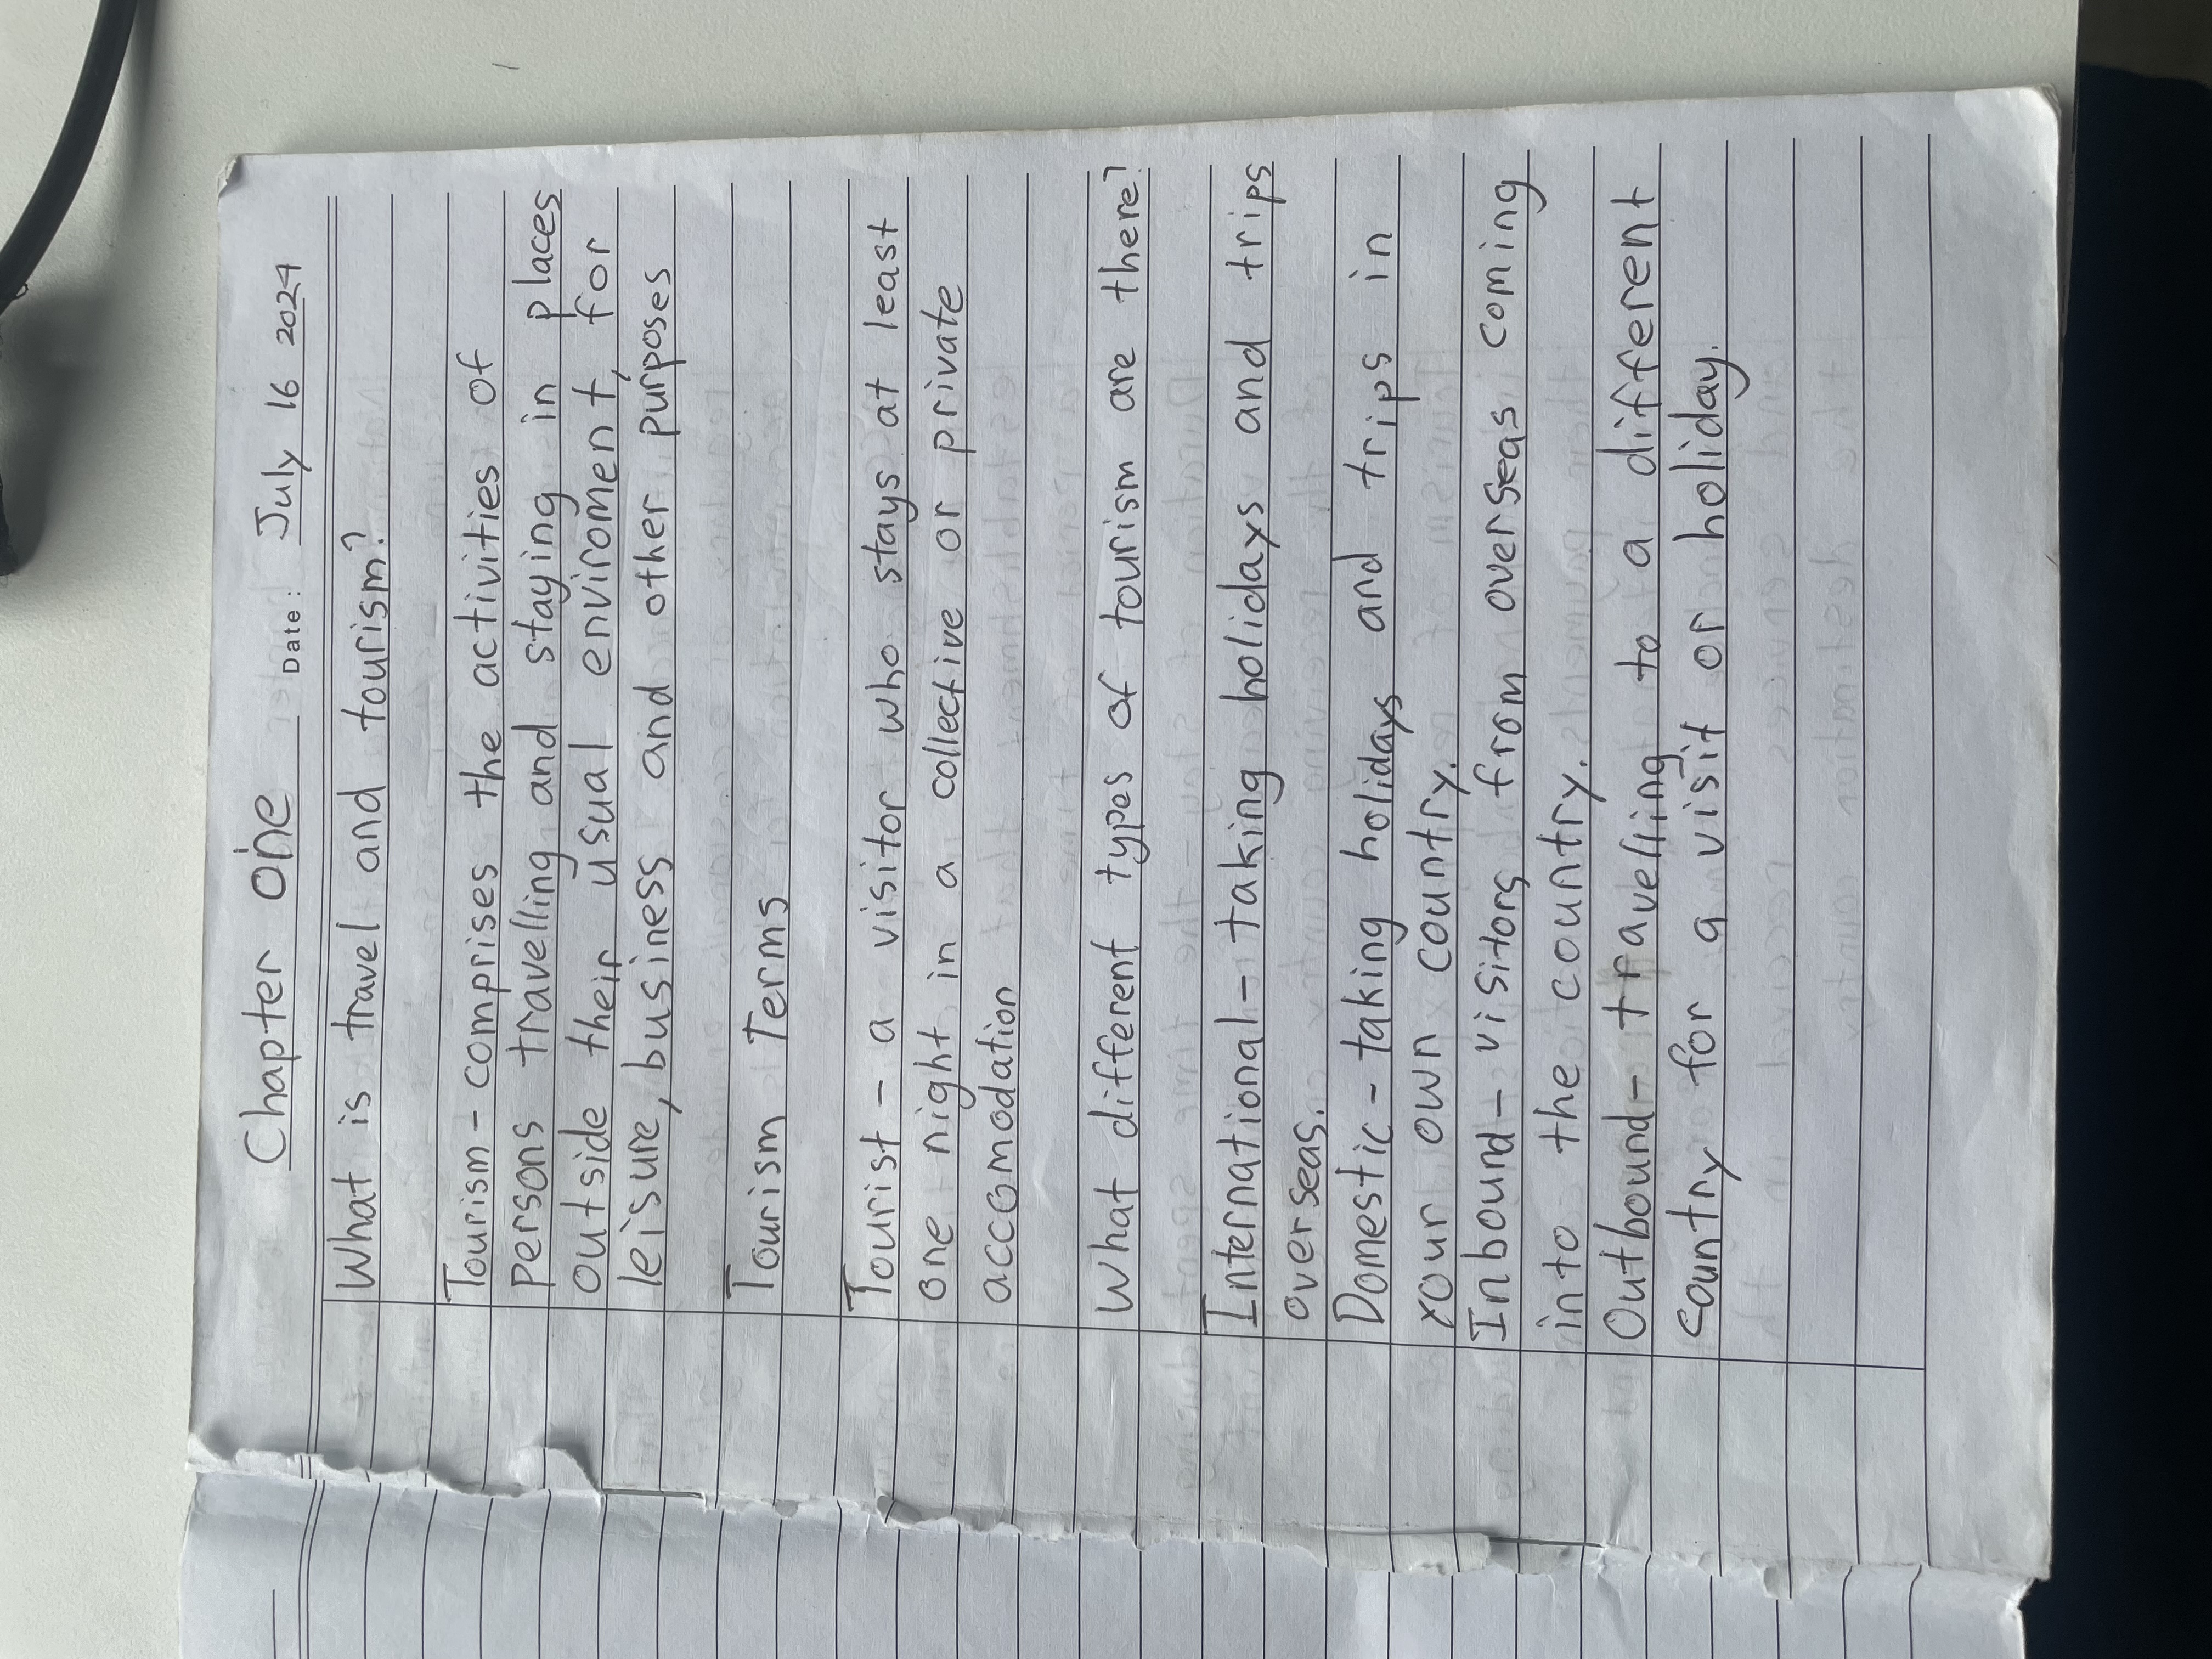 Chapter One
Date: July 16 2024
What is travel and tourism?
Tourism - comprises the activities of
persons travelling and staying in places
outside their usual enviroment, for
leisure, business and other purposes
Tourism Terms
Tourist - a visitor who stays at least
one night in a collective or private
accomodation
What different types of tourism are there?
International - taking holidays and trips
overseas.
Domestic - taking holidays and trips in
your own country.
Inbound - visitors from overseas coming
into the country.
Outbound - travelling to a different
country for a visit or holiday.